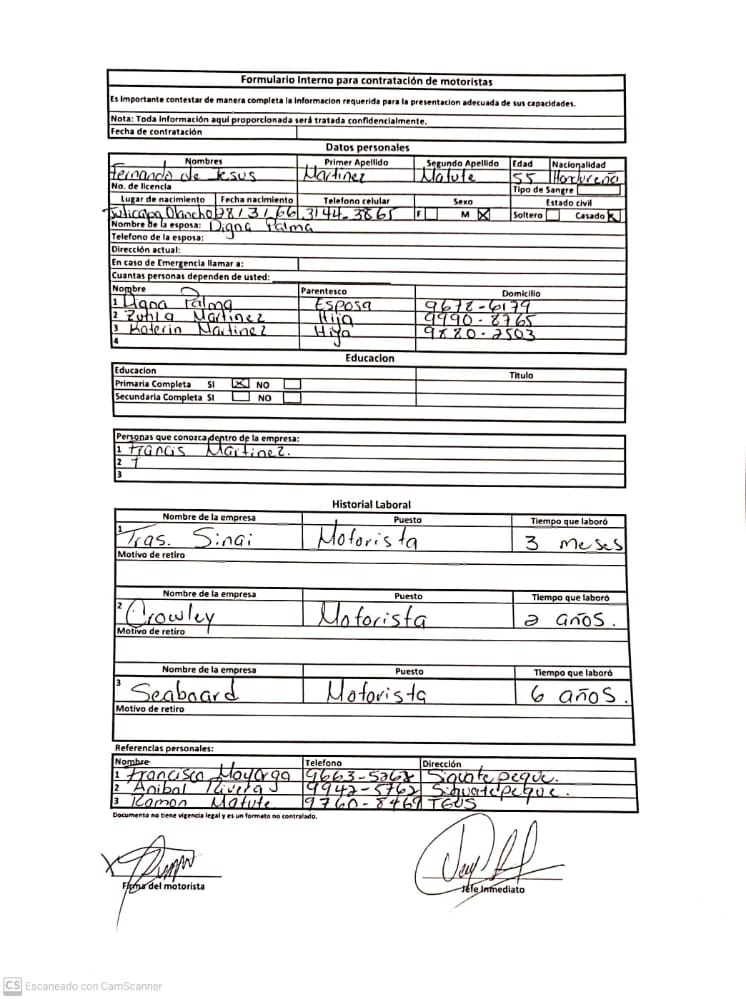 Formulario Interno para contratación de motoristas
Es importante contestar de manera completa la informacion requerida para la presentacion adecuada de sus capacidades.
Nota: Toda información aquí proporcionada será tratada confidencialmente.
Fecha de contratación
Datos personales
Nombres Primer Apellido Segundo Apellido Edad Nacionalidad
Fernando de Jesus Martinez Matute 55 Hondureña
No. de licencia Tipo de Sangre
Lugar de nacimiento Fecha nacimiento Telefono celular Sexo Estado civil
Juticapa Olancho 28/3/66 3144-3865 F M X Soltero Casado X
Nombre de la esposa: Digna Palma
Telefono de la esposa:
Dirección actual:
En caso de Emergencia llamar a:
Cuantas personas dependen de usted:
Nombre Parentesco Domicilio
1 Digna Palma Esposa 9678-6179
2 Martinez Hija 9990-8765
3 Katerin Martinez Hija 9880-2503
4
Educacion
Educacion Titulo
Primaria Completa SI X NO
Secundaria Completa SI NO
Personas que conozca dentro de la empresa:
1 Francis Martinez.
2
3
Historial Laboral
Nombre de la empresa Puesto Tiempo que laboró
1 Tras. Sinai Motorista 3 meses
Motivo de retiro
Nombre de la empresa Puesto Tiempo que laboró
2 Crowley Motorista 2 años.
Motivo de retiro
Nombre de la empresa Puesto Tiempo que laboró
3 Seaboard Motorista 6 años.
Motivo de retiro
Referencias personales:
Nombre Telefono Dirección
1 Francisco Mayorga 9663-5268 Siguatepeque.
2 Anibal Riveras 9942-5762 Siguatepeque.
3 Ramon Matute 9760-8469 TGUS
Documento no tiene vigencia legal y es un formato no contralado.
Firma del motorista Jefe Inmediato
CS Escaneado con CamScanner